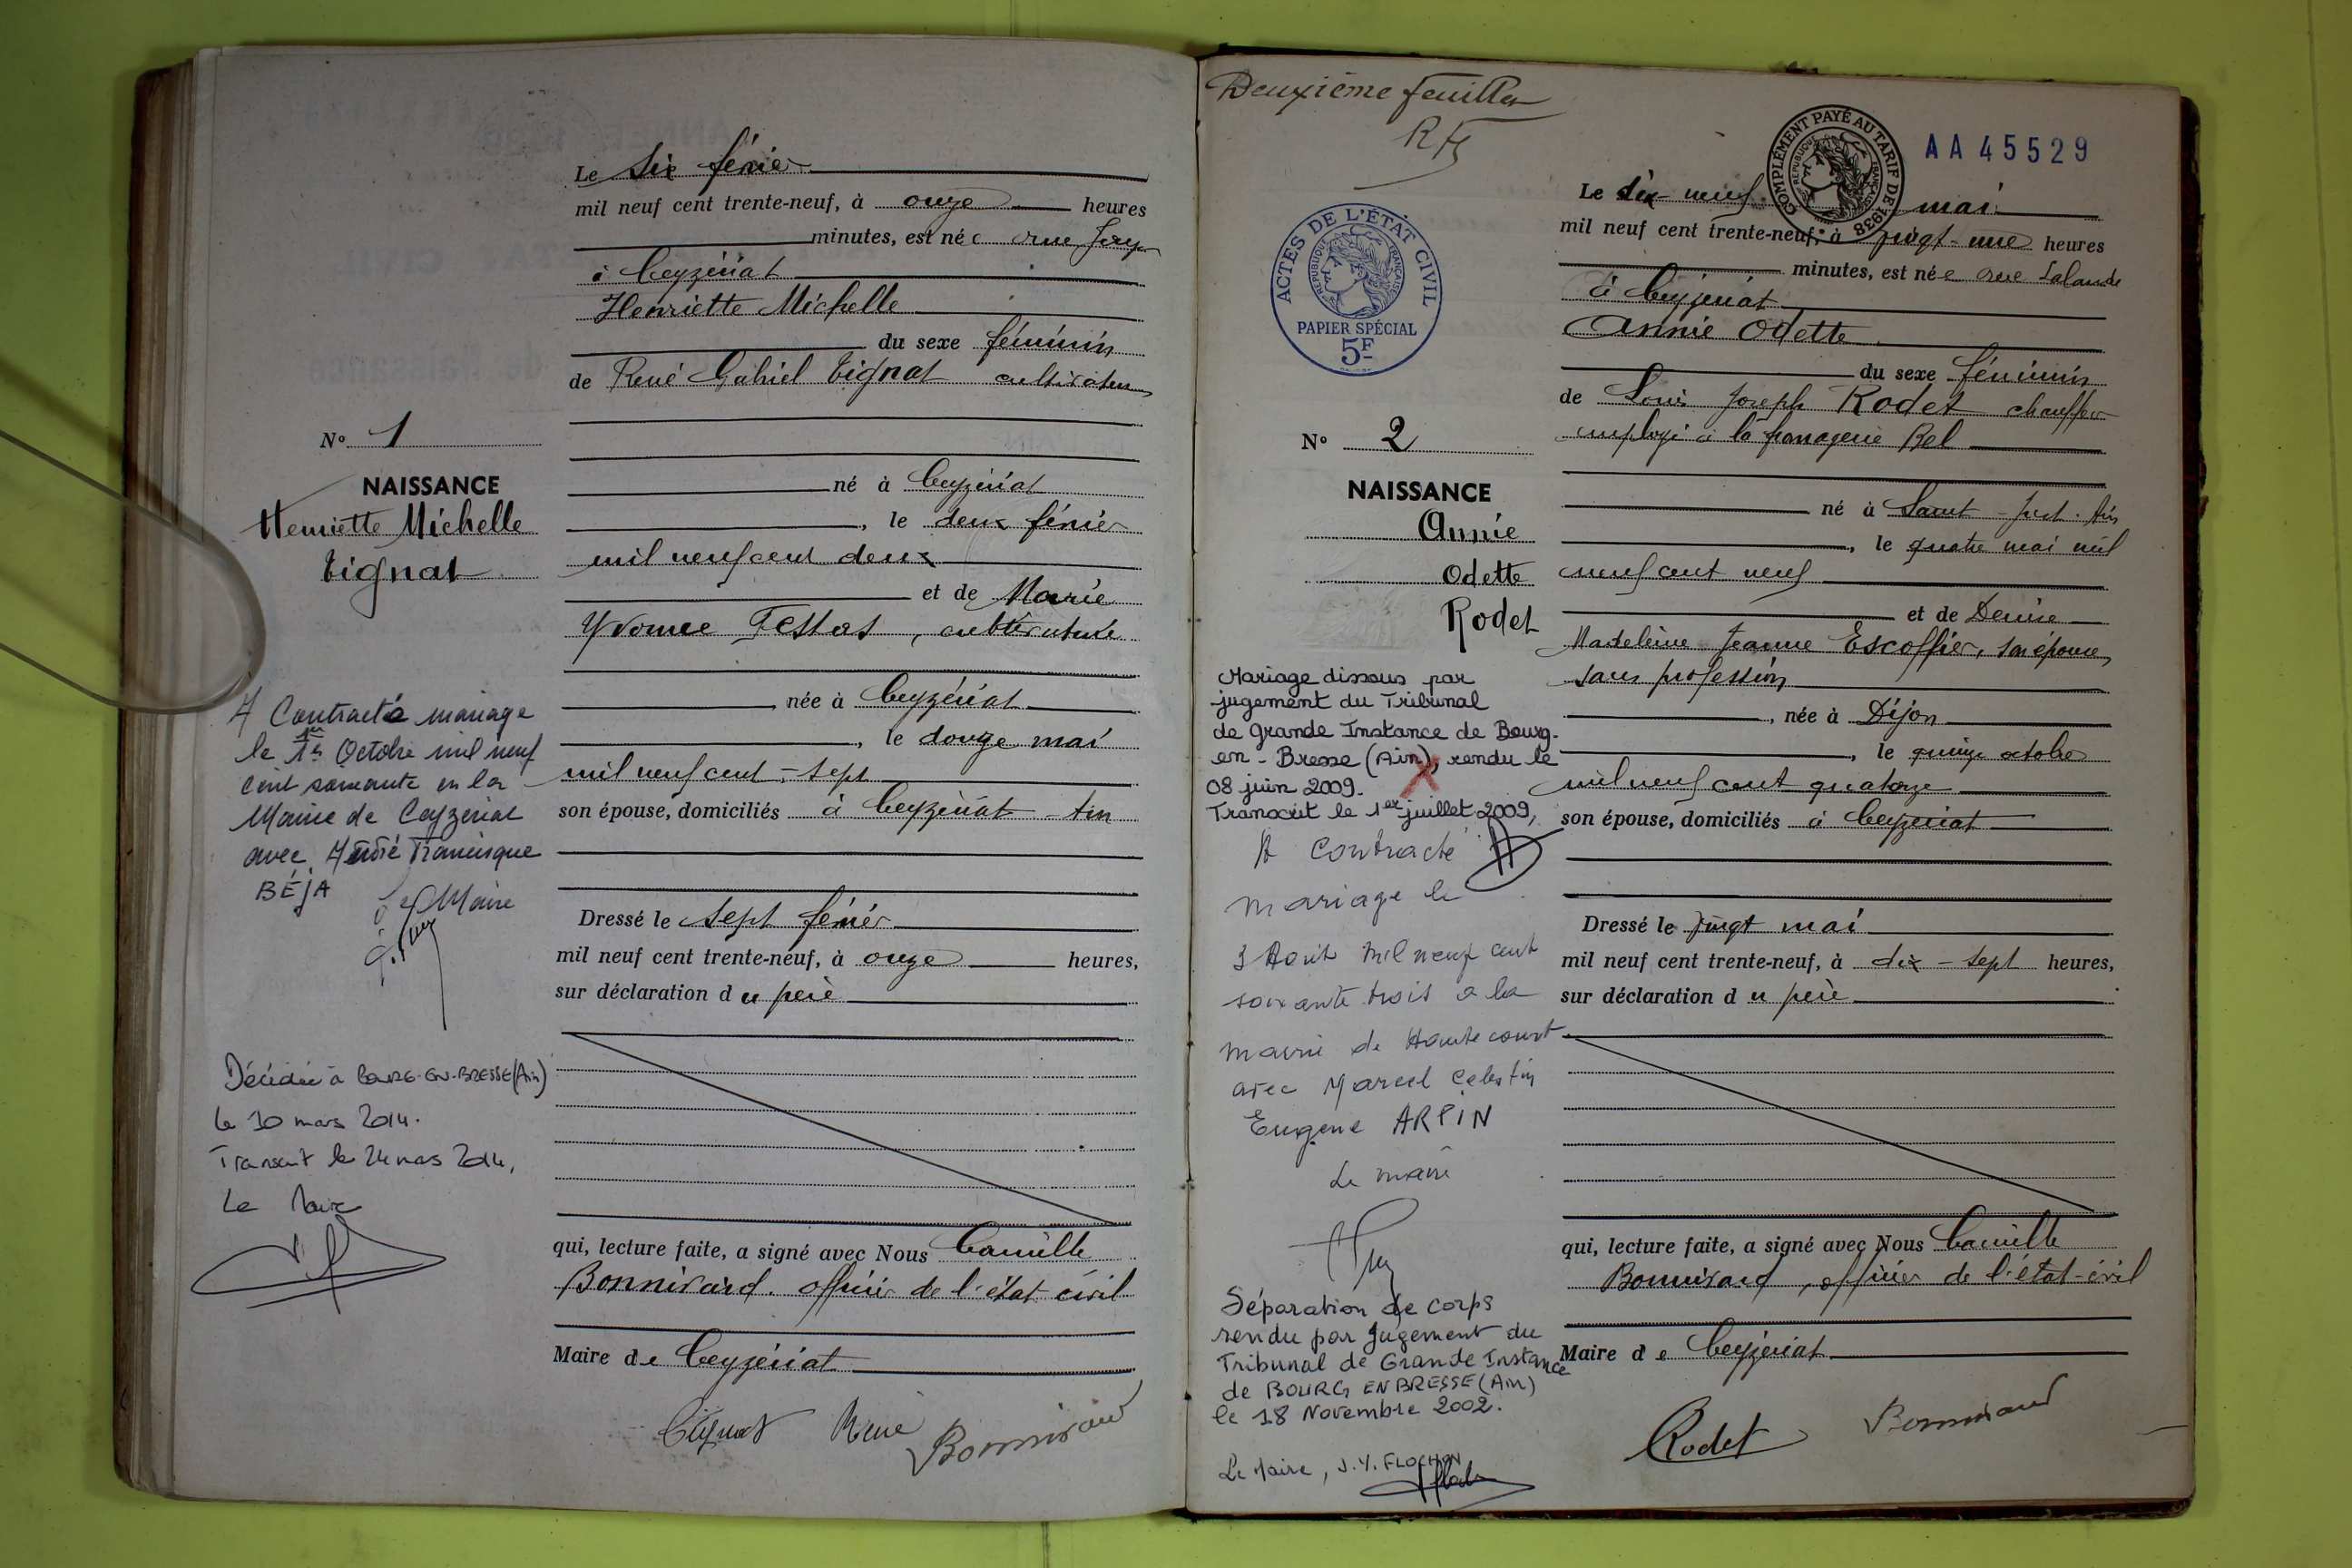 Le six février
mil neuf cent trente-neuf, à onze heures
minutes, est née rue
à Ceyzériat
Henriette Michelle
du sexe féminin
de René Gabriel Tignat cultivateur
né à Ceyzériat
, le deux février
mil neuf cent deux
et de Marie
Yvonne Festas, cultivatrice
née à Ceyzériat
, le douze mai
mil neuf cent sept
son épouse, domiciliés à Ceyzériat - Ain
Dressé le sept février
mil neuf cent trente-neuf, à onze heures,
sur déclaration du père
qui, lecture faite, a signé avec Nous Camille
Bonnivard. officier de l'état civil
Maire de Ceyzériat
Tignat René Bonnivard
N° 1
NAISSANCE
Henriette Michelle
Tignat
A Contracté mariage
le 1er Octobre mil neuf
cent soixante en la
Mairie de Ceyzériat
avec André Francisque
BÉJA
Le Maire
Décédée à BOURG-EN-BRESSE (Ain)
le 10 mars 2014.
Transcrit le 24 mars 2014,
Le Maire
Deuxième feuillet
ACTES DE L'ÉTAT CIVIL
RÉPUBLIQUE FRANÇAISE
PAPIER SPÉCIAL
5F
COMPLÉMENT PAYÉ AU TARIF DE 1938
RÉPUBLIQUE FRANÇAISE
AA 45529
N° 2
NAISSANCE
Annie
Odette
Rodet
Mariage dissous par
jugement du Tribunal
de Grande Instance de Bourg-
en-Bresse (Ain), rendu le
08 juin 2009.
Transcrit le 1er juillet 2009,
A contracté
mariage le
3 Août mil neuf cent
soixante trois a la
mairie de Hautecourt
avec Marcel Celestin
Eugene ARPIN
Le maire
Séparation de corps
rendu par Jugement du
Tribunal de Grande Instance
de BOURG EN BRESSE (Ain)
le 18 Novembre 2002.
Le Maire, J.Y. FLOCHON
Le dix neuf mai
mil neuf cent trente-neuf, à vingt-une heures
minutes, est née rue Lalande
à Ceyzériat
Annie Odette
du sexe féminin
de Louis Joseph Rodet chauffeur
employé à la fromagerie Bel
né à Saint-Just. Ain
, le quatre mai mil
neuf cent neuf
et de Denise
Madeleine Jeanne Escoffier, son épouse,
sans profession
, née à Dijon
, le quinze octobre
mil neuf cent quatorze
son épouse, domiciliés à Ceyzériat
Dressé le vingt mai
mil neuf cent trente-neuf, à dix-sept heures,
sur déclaration du père
qui, lecture faite, a signé avec Nous Camille
Bonnivard, officier de l'état-civil
Maire de Ceyzériat
Rodet Bonnivard